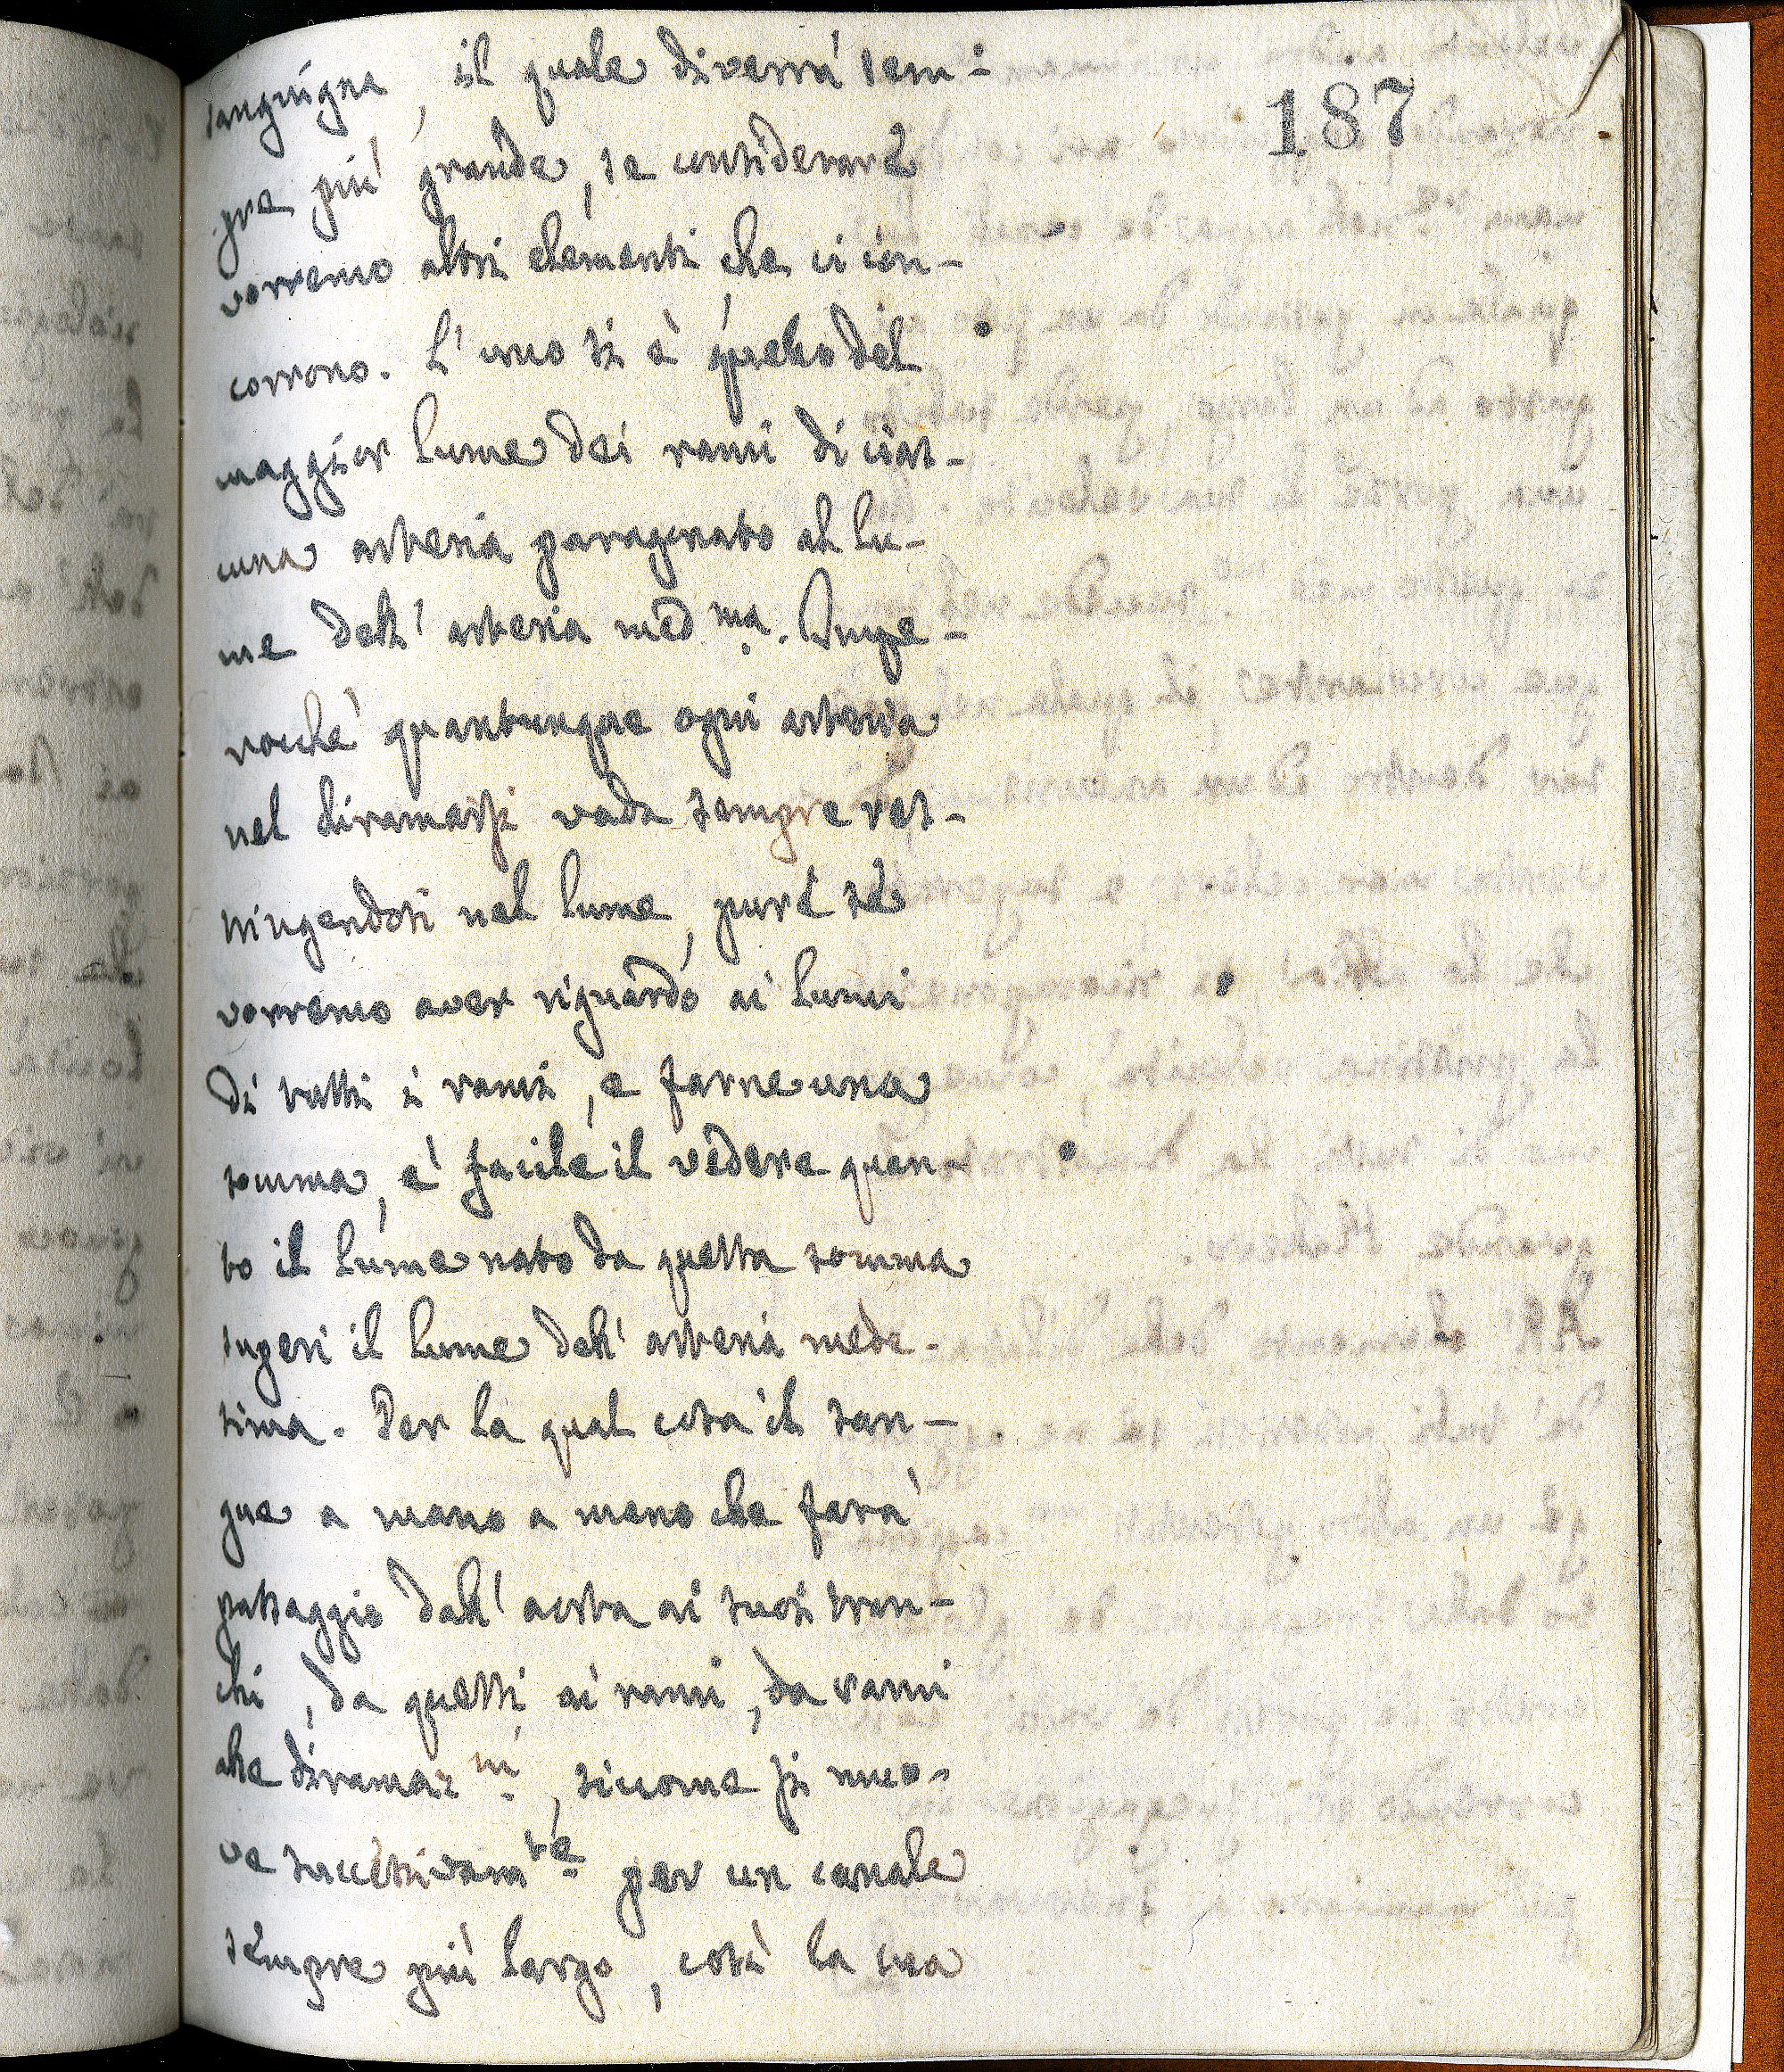 187
sanguigna, il quale diverrà sem-
pre più grande, se considerare
vorremo altri elementi che ci con-
corrono. L'uno si è quello del
maggior lume dei rami di cias-
cuna arteria paragonato al lu-
me dell'arteria med.ma. Impe-
rocchè quantunque ogni arteria
nel diramarsi vada sempre res-
tringendosi nel lume, pure se
vorremo aver riguardo ai lumi
di tutti i rami, e farne una
somma, è facile il vedere quan-
to il lume nato da questa somma
superi il lume dell'arteria mede-
sima. Per la qual cosa il san-
gue a mano a mano che farà
passaggio dall'aorta ai suoi tron-
chi, da questi ai rami, da rami
alle diramaz.ni, siccome si muo-
ve successivam.te per un canale
sempre più largo, così la sua